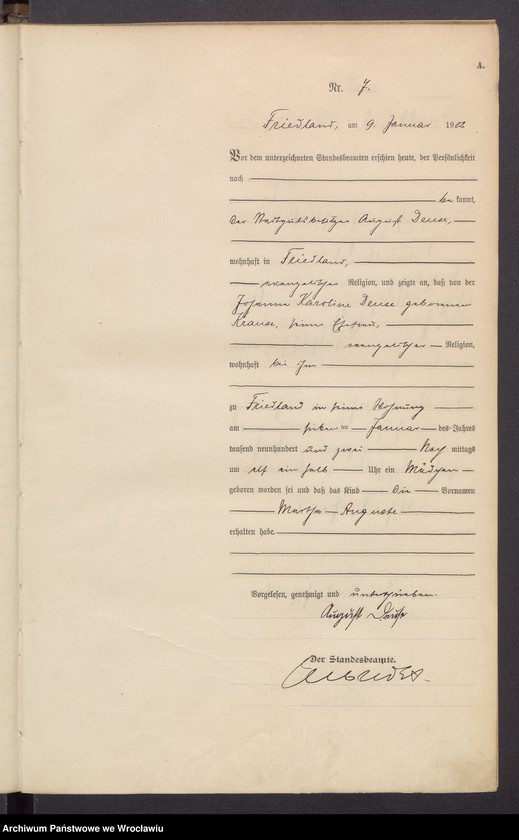 A.
Nr. 7.
Friedland, am 9. Januar 1902
Vor dem unterzeichneten Standesbeamten erschien heute, der Persönlichkeit
nach
be kannt,
der August Deuse,
wohnhaft in Friedland,
evangelischer Religion, und zeigte an, daß von der
Johanna Karoline Deuse geborenen
Krause, seiner Ehefrau,
evangelischer Religion,
wohnhaft bei ihm
zu Friedland in seiner Wohnung
am sieben ten Januar des Jahres
tausend neunhundert und zwei Nach mittags
um elf ein halb Uhr ein Mädchen
geboren worden sei und daß das Kind die Vornamen
Martha Auguste
erhalten habe.
Vorgelesen, genehmigt und unterschrieben.
August Deuse
Der Standesbeamte.
Archiwum Państwowe we Wrocławiu